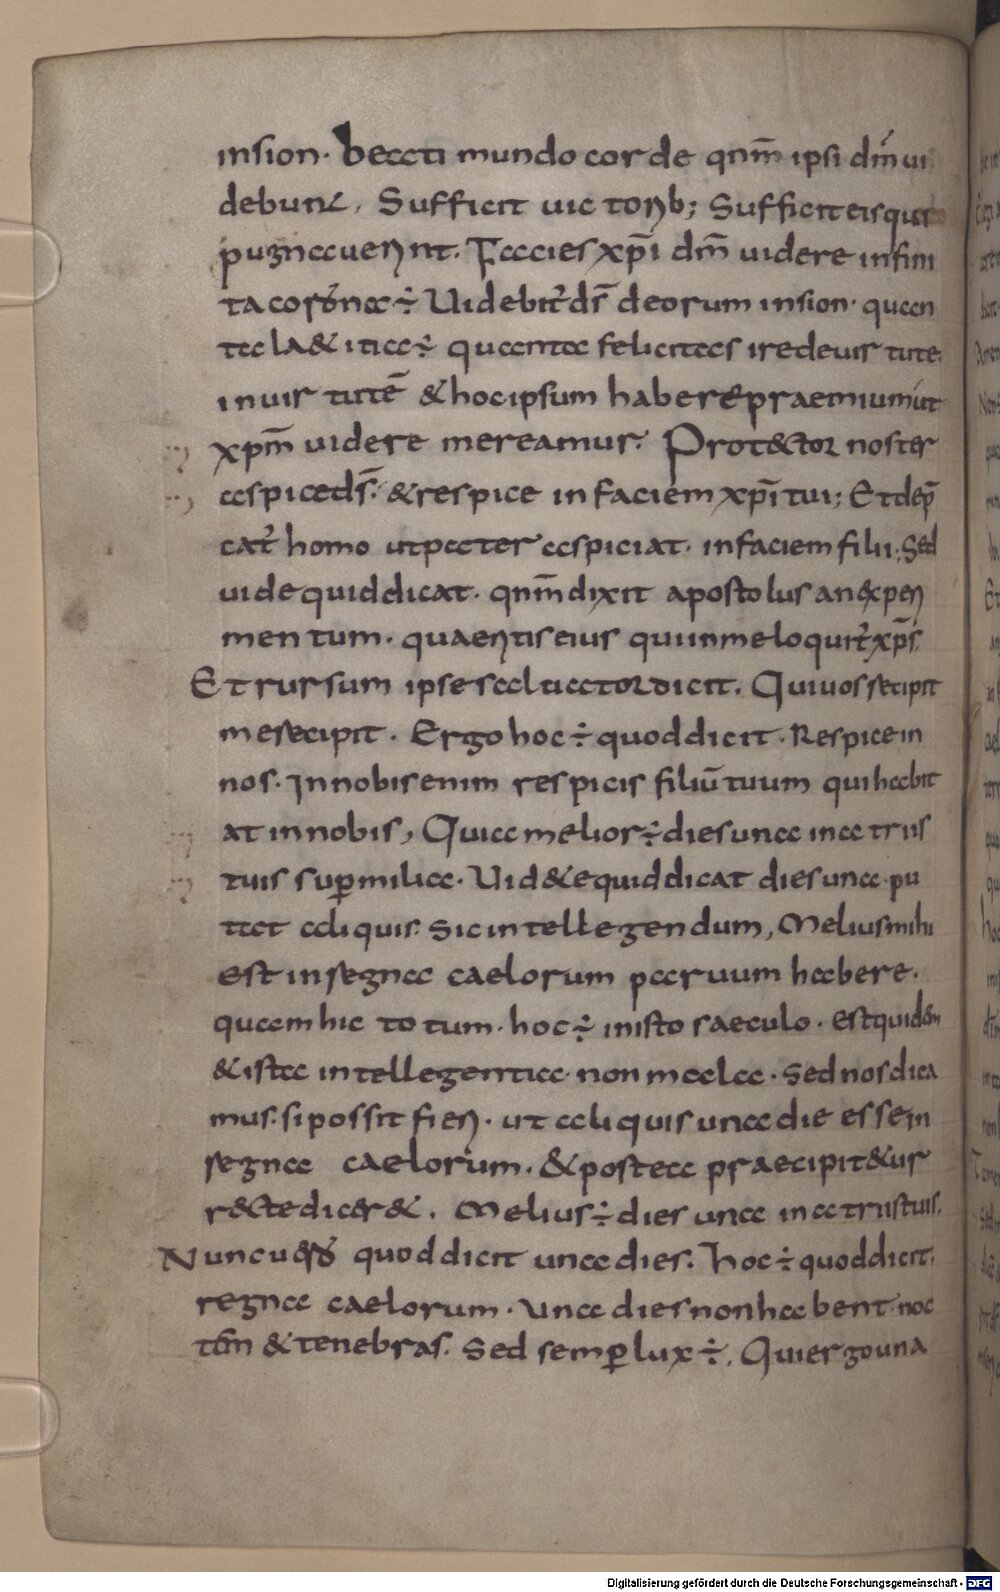 insion. beati mundo corde qnm̄ ipsi dm̄ ui
debunt, Sufficit uictorib; Sufficit eis qui
pugnauerint. Facies xp̄i dm̄ uidere infini
ta corona ÷ Uidebit᷑ ds̄ deorum insion. quan
ta la&itia ÷ quanta felicitas ire de uirtute
in uirtutē & hoc ipsum habere praemium ut
xpm̄ uidere mereamur. Prot&tor noster
aspice ds̄. & respice in faciem xp̄i tui; Et dep̄
cat᷑ homo ut pater aspiciat. in faciem filii. Sed
uide quid dicat. qnm̄ dixit apostolus an experi
mentum. quaeritis eius qui in me loquit᷑ xp̄s.
Et rursum ipse saluator dicit. Qui uos recipit
me recipit. Ergo hoc ÷ quod dicit. Respice in
nos. In nobis enim respicis filiū tuum qui habit
at in nobis, Quia melior ÷ dies una in atriis
tuis sup̄ milia. Uid&e quid dicat dies una. pu
tat aliquis. sic intellegendum, Melius mihi
est in regna caelorum paruum habere.
quam hic totum. hoc ÷ in isto saeculo. est quidem
& ista intellegentia non mala. sed nos dica
mus. si possit fieri. ut aliquis una die esse in
regna caelorum. & postea praecipit&ur
r&te dicer&. Melius ÷ dies una in atriis tuis.
Nunc uero quod dicit una dies. hoc ÷ quod dicit.
regna caelorum. una dies non habent noc
tem & tenebras. Sed semp̄ lux ÷. Qui ergo una
Digitalisierung gefördert durch die Deutsche Forschungsgemeinschaft - DFG